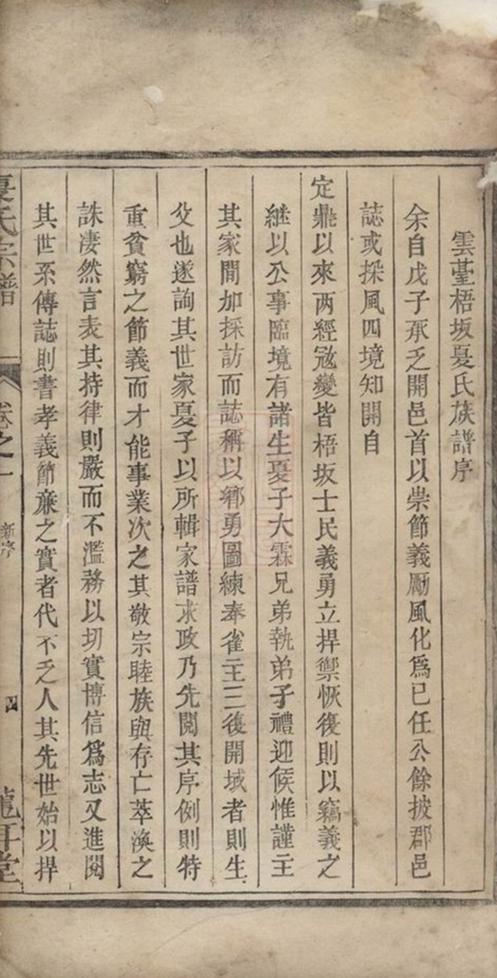 雲臺梧坂夏氏族譜序
余自戊子承乏開邑首以崇節義勵風化爲已任公餘披郡邑
誌或採風四境知開自
定鼎以來两經寇變皆梧坂士民義勇立捍禦恢復則以竊義之
繼以公事臨境有諸生夏子大霖兄弟執弟子禮迎候惟謹主
其家間加採訪而誌稱以鄉勇圖練奉雀主三復開城者則生
父也遂詢其世家夏子以所輯家譜求政乃先閱其序例則特
重貧窮之節義而才能事業次之其敬宗睦族與存亡萃渙之
誅凄然言表其持律則嚴而不濫務以切實博信爲志又進閱
其世系傳誌則書孝義節亷之實者代不乏人其先世始以捍
夏氏宗譜 卷之一 新序 四